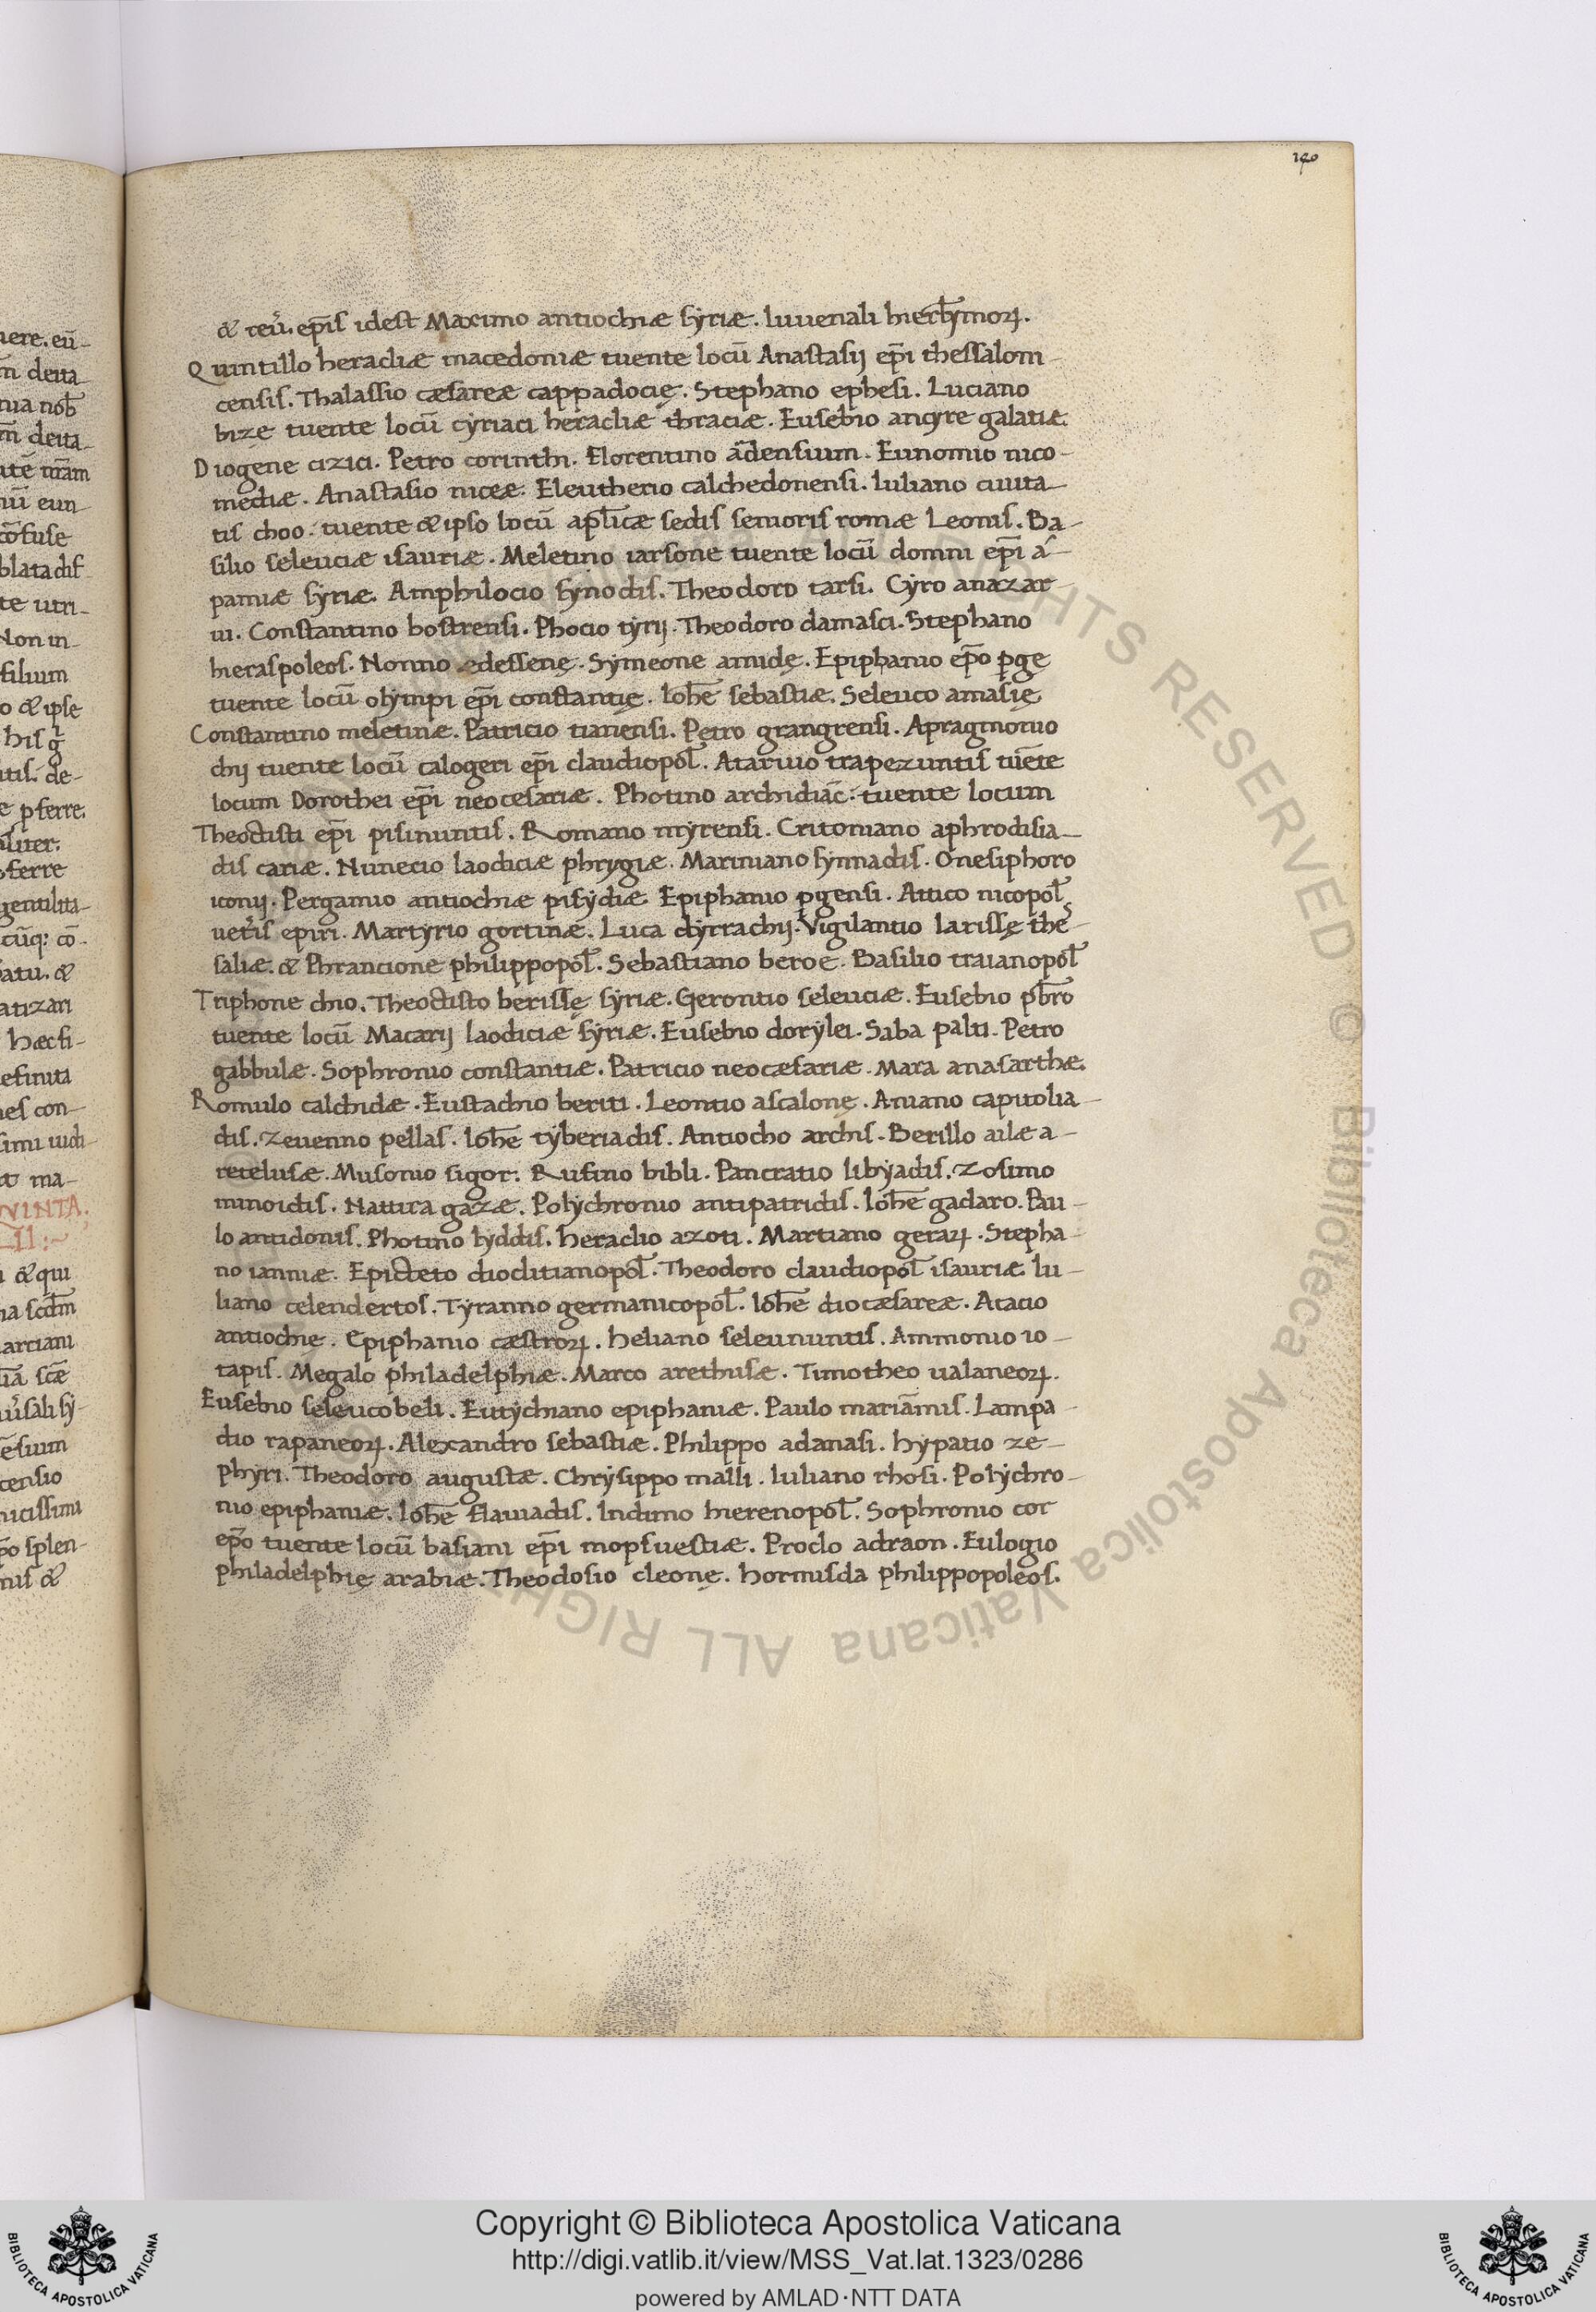 140
& reu̅. ep̅is idest Maximo antiochiæ syriæ. Iuuenali hierl̅ymoꝝ.
Quintillo heracliæ macedoniæ tuente locū Anastasij ep̅i thessalom-
censis. Thalassio cæsareæ cappadocię. Stephano ephesi. Luciano
bize tuente locū cyriaci heracliæ thraciæ. Eusebio ancyre galatiæ.
Diogene cizici. Petro corinthi. Florentino ādensium. Eunomio nico-
mediæ. Anastasio niceæ. Eleutherio calchedonensi. Iuliano ciuita-
tis choo. tuente & ipso locū apl̅icæ sedis senioris romæ Leonis. Ba-
silio seleuciæ isauriæ. Meletino iarsone tuente locū domni ep̅i a-
pamiæ syriæ. Amphilocio synodis. Theodoro tarsi. Cyro anazar-
ui. Constantino bostrensi. Phocio tyrij. Theodoro damasci. Stephano
hieraspoleos. Nonno edessenę. Symeone amidę. Epiphanio ep̅o ꝑge
tuente locū olympi ep̅i constantię. Ioh̅e sebastiæ. Seleuco amasię
Constantino meletinæ. Patricio tianensi. Petro grangrensi. Apragmonio
chij tuente locū calogeri ep̅i claudiopol̅. Atarino trapezuntis tuēte
locum Dorothei ep̅i neocesariæ. Photino archidiac̅. tuente locum
Theoctisti ep̅i pisinuntis. Romano myrensi. Critoniano aphrodisia-
dis cariæ. Nunecio laodiciæ phrygiæ. Mariniano synnadis. Onesiphoro
iconij. Pergamio antiochiæ pisydiæ. Epiphanio ꝑgensi. Attico nicopol̅
uet̓is epiri. Martyrio gortinæ. Luca dyrrachij. Vigilantio larissę thes-
saliæ. & Phrancione philippopol̅. Sebastiano beroe. Basilio traianopol̅
Triphone chio. Theoctisto berissę syriæ. Gerontio seleuciæ. Eusebio pb̅ro
tuente locū Macarij laodiciæ syriæ. Eusebio dorylei. Saba palti. Petro
gabbulæ. Sophronio constantiæ. Patricio neocæsariæ. Mara anasarthæ.
Romulo calchidæ. Eustachio beriti. Leontio ascalonę. Aniano capitolia-
dis. Zeuenno pellas. Ioh̅e tyberiadis. Antiocho archis. Berillo ailæ a-
retelusæ. Musonio sigor. Rufino bibli. Pancratio libyadis. Zosimo
minoidis. Nattira gazæ. Polychronio antipatridis. Ioh̅e gadaro. Pau-
lo antidonis. Photino lyddis. heraclio azoti. Martiano geraꝝ. Stepha-
no ianniæ. Epicteto dioclitianopol̅. Theodoro claudiopol̅ isauriæ. Iu-
liano celendertos. Tyranno germanicopol̅. Ioh̅e diocæsareæ. Atacio
antiochie. Epiphanio cæstroꝝ. heliano seleununtis. Ammonio io-
tapis. Megalo philadelphiæ. Marco arethusæ. Timotheo ualaneoꝝ.
Eusebio seleucobeli. Eutychiano epiphaniæ. Paulo mariāmis. Lampa-
dio rapaneoꝝ. Alexandro sebastiæ. Philippo adanasi. hypatio ze-
phyri. Theodoro augustæ. Chrysippo malli. Iuliano rhosi. Polychro-
nio epiphaniæ. Ioh̅e flauiadis. Indimo hierenopol̅. Sophronio cor
ep̅o tuente locū basiani ep̅i mopsuestiæ. Proclo adraon. Eulogio
philadelphię arabiæ. Theodosio cleonę. hormisda philippopoleos.
Copyright © Biblioteca Apostolica Vaticana
http://digi.vatlib.it/view/MSS_Vat.lat.1323/0286
powered by AMLAD·NTT DATA